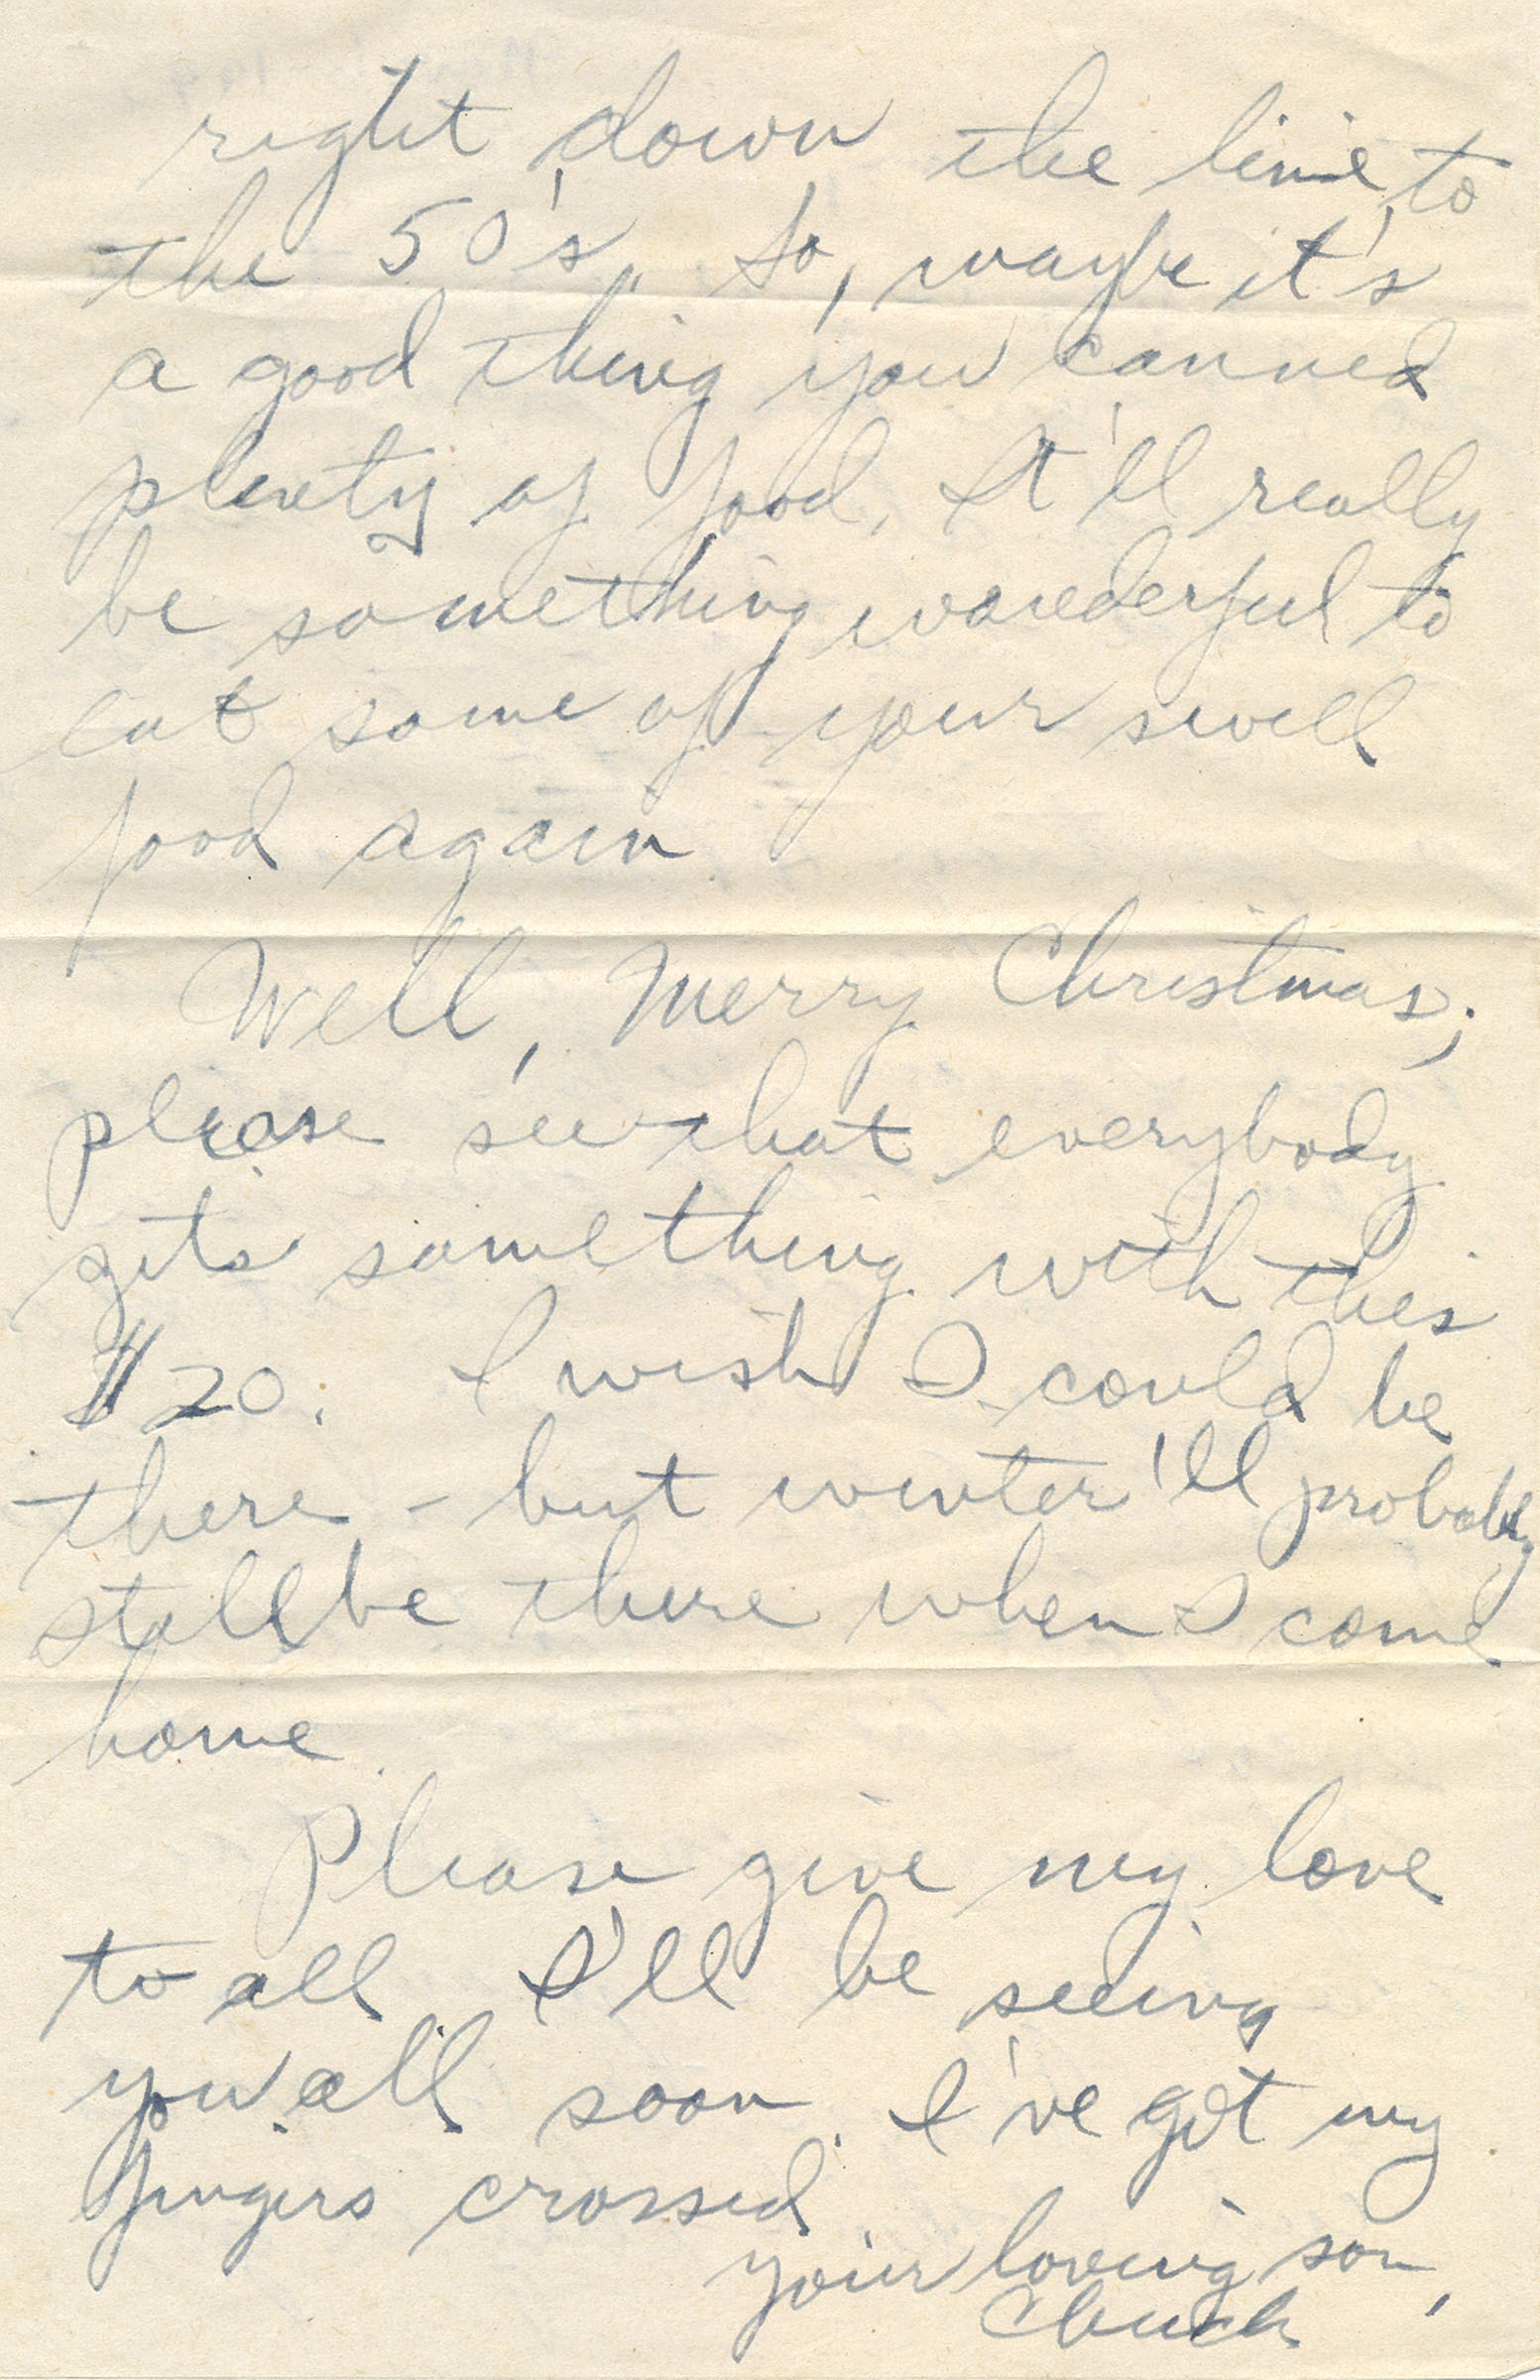 right down the line to
the 50's. So, maybe it's
a good thing you canned
plenty of food. It'll really
be something wonderful to
eat some of your swell
food again.
Well, Merry Christmas;
please see that everybody
gets something with this
$20. I wish I could be
there - but winter'll probably
still be there when I come
home.
Please give my love
to all. I'll be seeing
you all soon. I've got my
fingers crossed.
your loving son,
Chuck